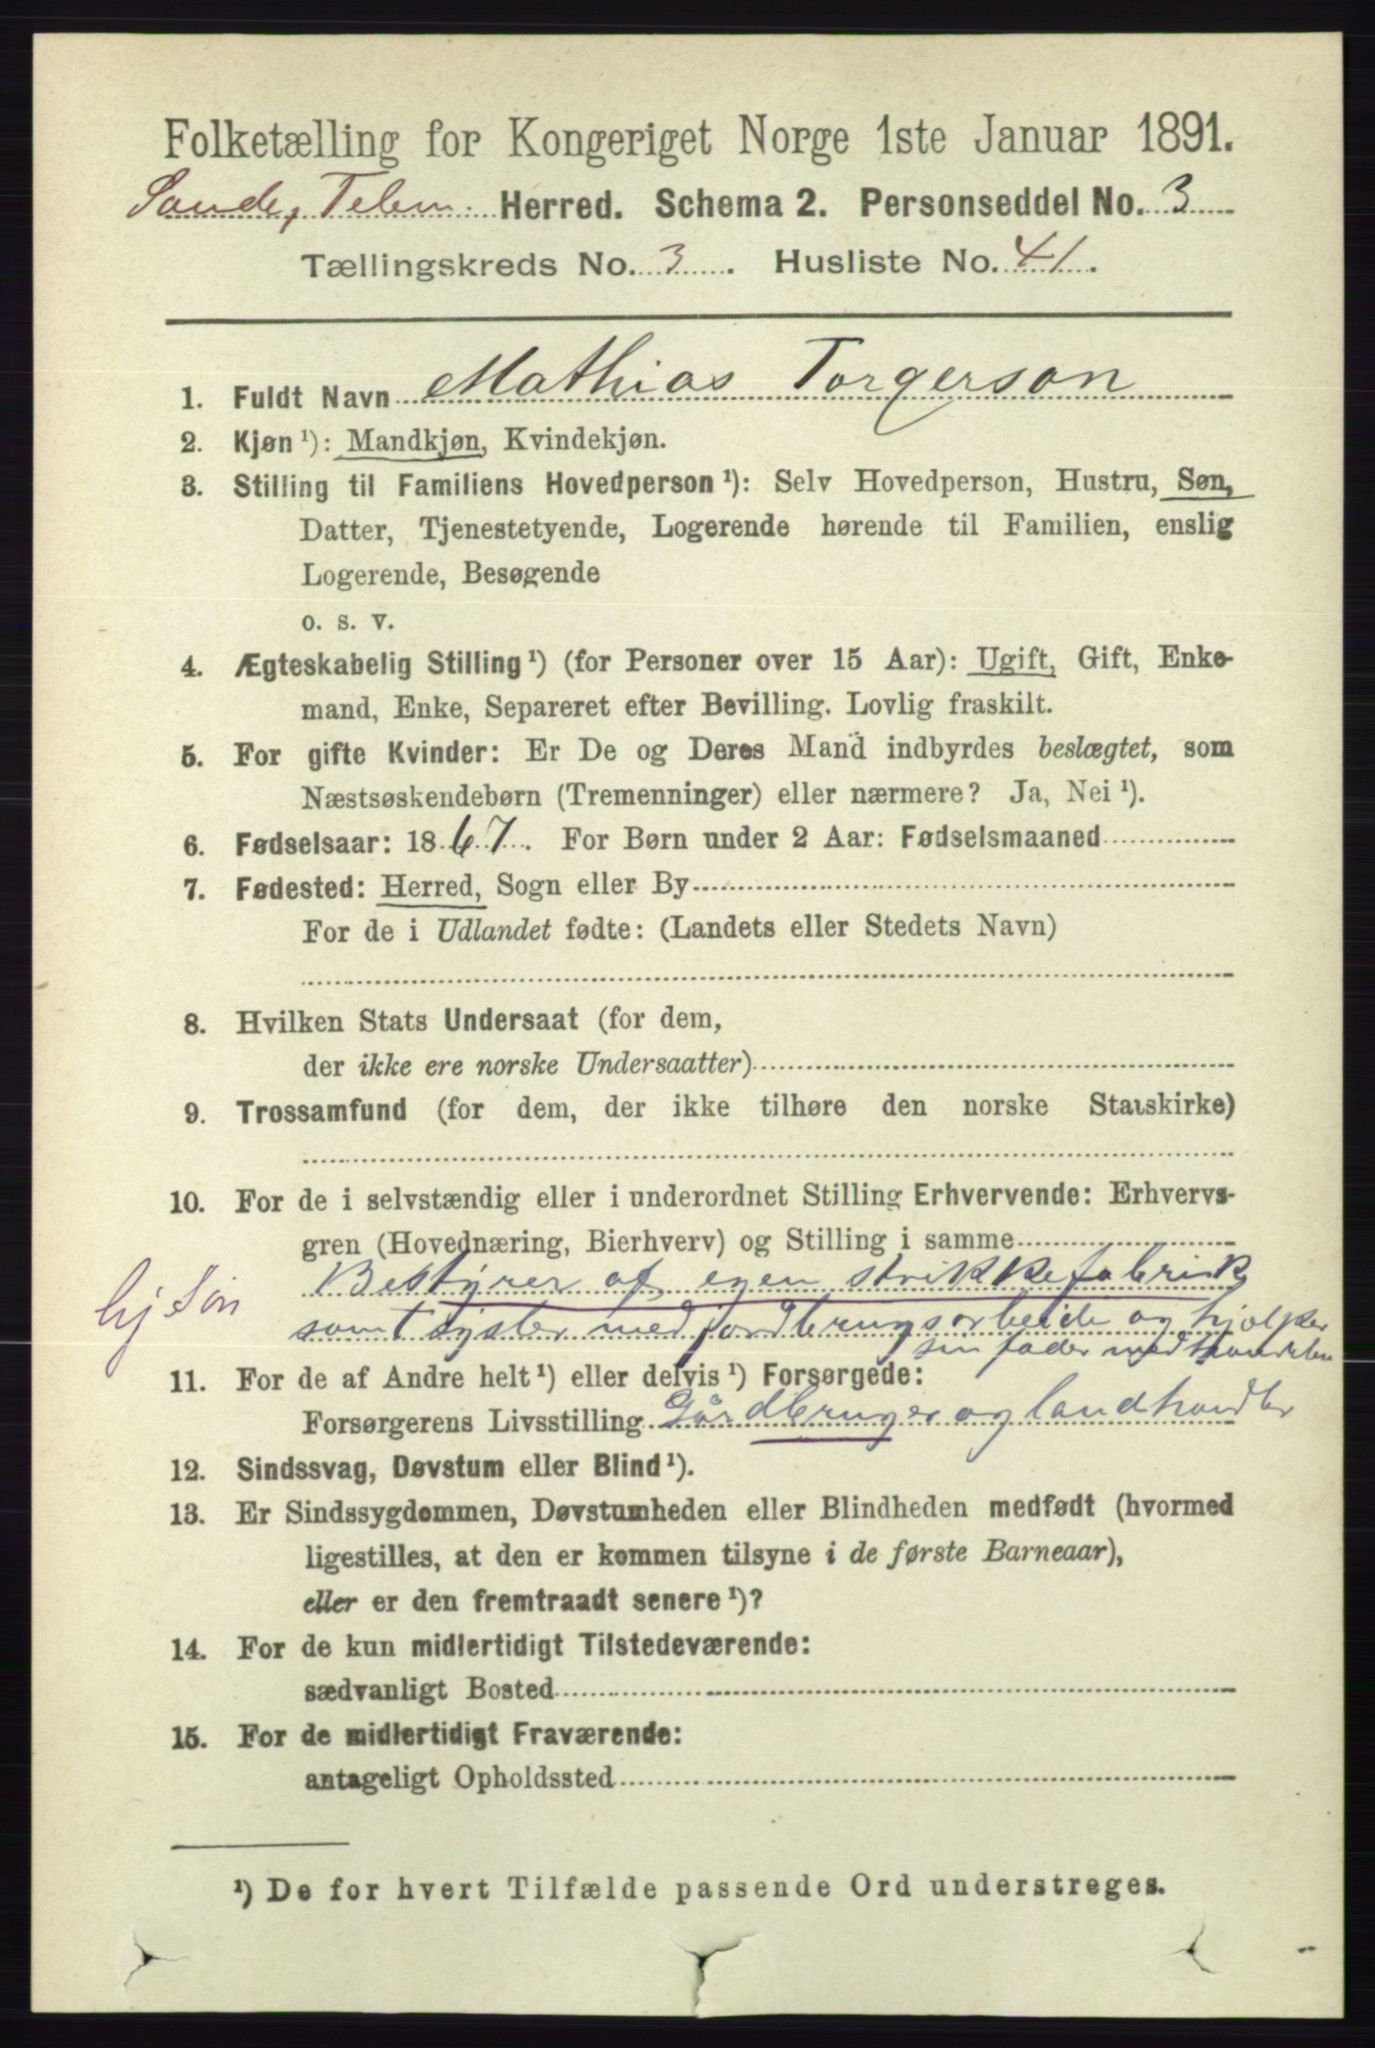 Folketælling for Kongeriget Norge 1ste Januar 1891.
Herred. Schema 2. Personseddel No. 3
Tællingskreds No. 3. Husliste No. 41.
1. Fuldt Navn Mathias Torgerson
2. Kjøn ¹): Mandkjøn, Kvindekjøn.
3. Stilling til Familiens Hovedperson ¹): Selv Hovedperson, Hustru, Søn,
Datter, Tjenestetyende, Logerende hørende til Familien, enslig
Logerende, Besøgende
o. s. v.
4. Ægteskabelig Stilling ¹) (for Personer over 15 Aar): Ugift, Gift, Enke-
mand, Enke, Separeret efter Bevilling. Lovlig fraskilt.
5. For gifte Kvinder: Er De og Deres Mand indbyrdes beslægtet, som
Næstsøskendebørn (Tremenninger) eller nærmere? Ja, Nei ¹).
6. Fødselsaar: 1867. For Børn under 2 Aar: Fødselsmaaned
7. Fødested: Herred, Sogn eller By
For de i Udlandet fødte: (Landets eller Stedets Navn)
8. Hvilken Stats Undersaat (for dem,
der ikke ere norske Undersaatter)
9. Trossamfund (for dem, der ikke tilhøre den norske Statskirke)
10. For de i selvstændig eller i underordnet Stilling Erhvervende: Erhvervs-
gren (Hovednæring, Bierhverv) og Stilling i samme
Bestyrer af egen strikkefabrik
hj Søn
samt sysler med jordbrugsarbeide og hjelper
sin fader med handelen
11. For de af Andre helt ¹) eller delvis ¹) Forsørgede:
Forsørgerens Livsstilling Gårdbruger og landhandler
12. Sindssvag, Døvstum eller Blind ¹).
13. Er Sindssygdommen, Døvstumheden eller Blindheden medfødt (hvormed
ligestilles, at den er kommen tilsyne i de første Barneaar),
eller er den fremtraadt senere ¹)?
14. For de kun midlertidigt Tilstedeværende:
sædvanligt Bosted
15. For de midlertidigt Fraværende:
antageligt Opholdssted
¹) De for hvert Tilfælde passende Ord understreges.